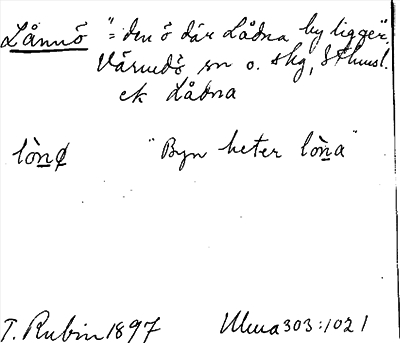 Lånnö "= den ö där Lådna by ligger".
Värmdö sn o. skg, Sthmsl.
ek Lådna
lònø "Byn heter lòna"
T. Rubin 1897 Ulma 303:102 1